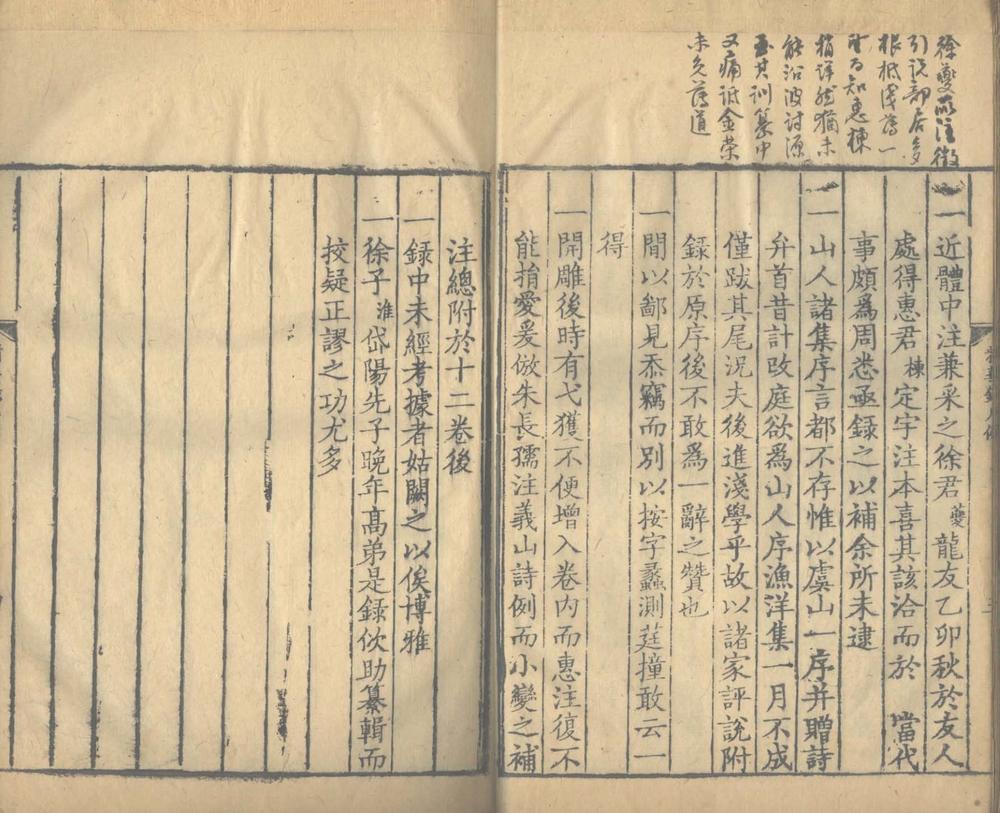 徐夔所注徵
引説部居多
根柢淺薄一
望而知惠棟
稍詳然猶未
能沿波討源
至其訓纂中
又痛詆金榮
未免薄道
一近體中注兼采之徐君夔龍友乙卯秋於友人
處得惠君棟定宇注本喜其該洽而於 當代
事頗爲周悉亟録之以補余所未逮
一山人諸集序言都不存惟以虞山一序并贈詩
弁首昔計改庭欲爲山人序漁洋集一月不成
僅跋其尾況夫後進淺學乎故以諸家評説附
録於原序後不敢爲一辭之贊也
一間以鄙見忝竊而別以按字蠡測莛撞敢云一
得
一開雕後時有弋獲不便增入卷内而惠注復不
能捐愛爰倣朱長孺注義山詩例而小變之補
注總附於十二卷後
一録中未經考據者姑闕之以俟博雅
一徐子淮岱陽先子晚年高弟是録佽助纂輯而
挍疑正謬之功尤多